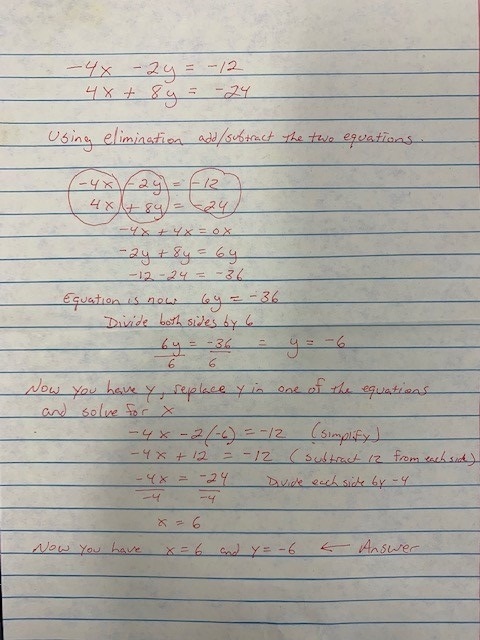 -4x - 2y = -12
4x + 8y = -24
Using elimination add/subtract the two equations.
-4x - 2y = -12
4x + 8y = -24
-4x + 4x = 0x
-2y + 8y = 6y
-12 - 24 = -36
Equation is now 6y = -36
Divide both sides by 6
6y = -36 = y = -6
6 6
Now you have y, replace y in one of the equations
and solve for x
-4x - 2(-6) = -12 (simplify)
-4x + 12 = -12 (subtract 12 from each side)
-4x = -24 Divide each side by -4
-4 -4
x = 6
Now you have x = 6 and y = -6 ← Answer